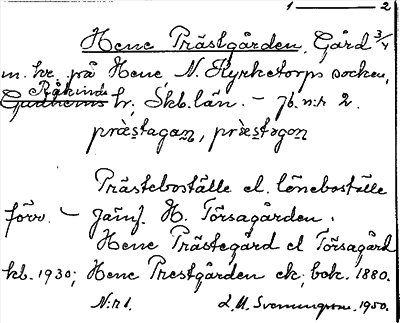 1 — 2
Hene Prästgården. Gård 3/4
m. hr. på Hene N. Kyrketorps socken,
Kåkinds
Gudhems hr, Skb. län. – Jb. n:r 2.
præstagaɳ, præstəgoɳ
Prästeboställe el. löneboställe
förr. – Jämf. H. Törsagården.
Hene Prästegård el Törsagård
kb. 1930; Hene Prestgården ek. bok. 1880.
N:r 1. 1950.